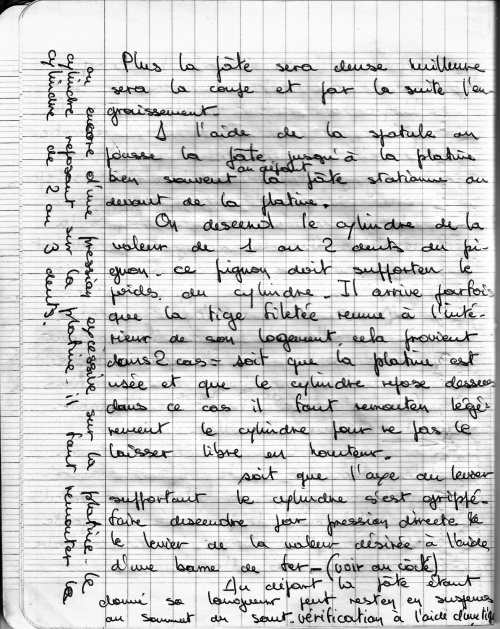 Plus la pâte sera dense meilleure
sera la coupe et par la suite l'en-
graissement.
A l'aide de la spatule on
pousse la pâte jusqu'à la platine
au départ
bien souvent la pâte stationne au
devant de la platine.
On descend le cylindre de la
valeur de 1 ou 2 dents du pi-
gnon. ce pignon doit supporter le
poids du cylindre. Il arrive parfois
que la tige filetée remue à l'inté-
rieur de son logement, cela provient
dans 2 cas = soit que la platine est
usée et que le cylindre repose dessus
dans ce cas il faut remonter légè-
rement le cylindre pour ne pas le
laisser libre en hauteur.
soit que l'axe du levier
supportant le cylindre s'est grippé.
faire descendre par pression directe
le levier de la valeur désirée à l'aide
d'une barre de fer - (voir au dos)
Au départ la pâte étant
donné sa longueur peut rester en suspens
au sommet du saut. vérification à l'aide d'une tige
ou encore d'une pression excessive sur la platine. le
cylindre reposant sur la platine. il faut remonter le
cylindre de 2 ou 3 dents.